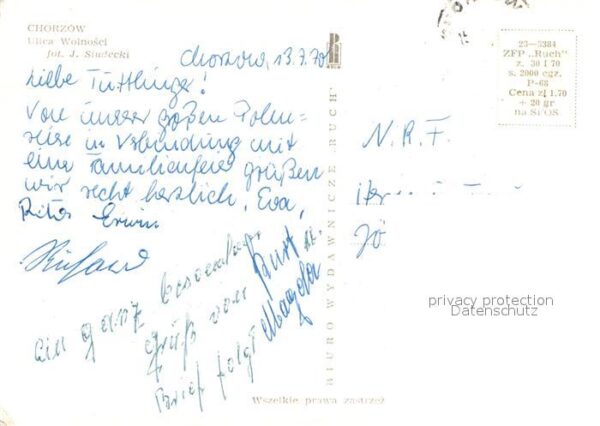 CHORZÓW
Ulica Wolności
fot. J. Siudecki
Chorzow, 13.7.70
Liebe Tuttlinger!
Von unser großen Polen-
reise in Verbindung mit
eine Familienfeier grüßen
wir recht herzlich. Eva,
Rita, Erwin
Richard
Ein ganz besonderer
Gruß von Kurt u.
Magda
Brief folgt
BIURO WYDAWNICZE „RUCH"
23—5384
ZFP „Ruch"
z. 30 I 70
s. 2000 egz.
P-68
Cena zł 1.70
+ 20 gr
na SFOS
N.R.F.
privacy protection
Datenschutz
Wszelkie prawa zastrzeż